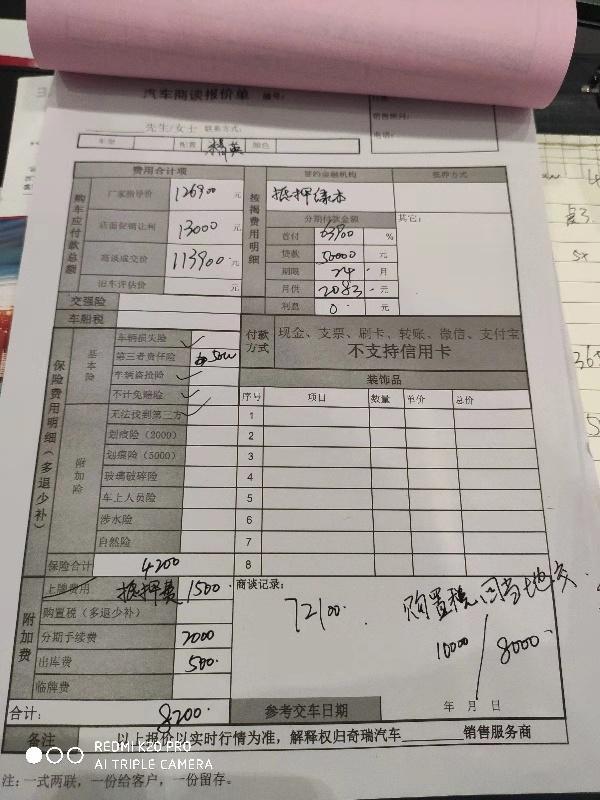 汽车商谈报价单 编号：
先生/女士 联系方式：
销售顾问：
电话：
车型 配置 精英 颜色
费用合计项 签约金融机构 抵押方式
购车应付款总额
厂家指导价 126900 元
店面促销让利 13000 元
商谈成交价 113900 元
旧车评估价 元
按揭费用明细
抵押绿本
分期付款金额 其它：
首付 63900 %
贷款 50000 元
期限 24 月
月供 2083 元
利息 0 元
交强险
车船税
付款方式 现金、支票、刷卡、转账、微信、支付宝
不支持信用卡
保险费用明细（多退少补）
基本险
车辆损失险 ✓
第三者责任险 50w
车辆盗抢险 ✓
不计免赔险 ✓
附加险
无法找到第三方 ✓
划痕险（2000）
划痕险（5000）
玻璃破碎险
车上人员险
涉水险
自燃险
保险合计 4200
装饰品
序号 项目 数量 单价 总价
1
2
3
4
5
6
7
8
附加费
上牌费用 抵押费 1500
购置税（多退少补）
分期手续费 2000
出库费 500
临牌费
合计： 8200
商谈记录：
72100. 购置税回当地交
10000 / 8000.
参考交车日期 年 月 日
备注 以上报价以实时行情为准，解释权归奇瑞汽车______销售服务商
注：一式两联，一份给客户，一份留存。
REDMI K20 PRO
AI TRIPLE CAMERA